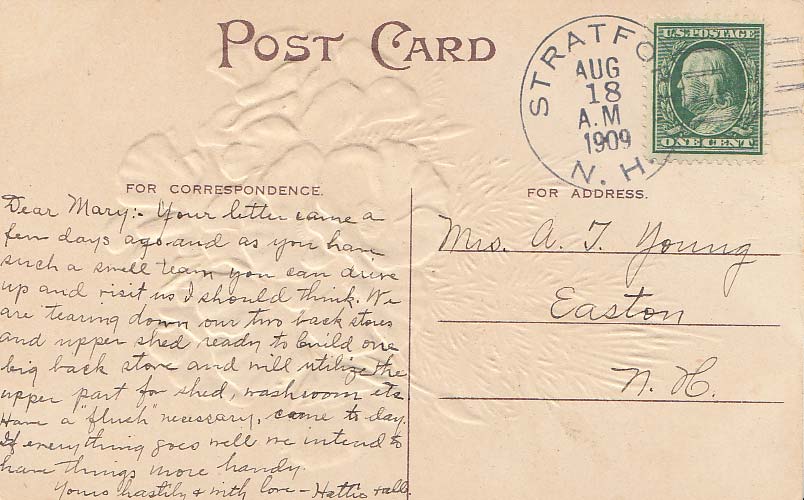 POST CARD
STRATFO
AUG
18
A.M
1909
N. H.
U.S. POSTAGE
ONE CENT
FOR CORRESPONDENCE.
FOR ADDRESS.
Dear Mary:- Your letter came a
few days ago and as you have
such a swell team you can drive
up and visit us I should think. We
are tearing down our two back stores
and upper shed ready to build one
big back store and will utilize the
upper part for shed, washroom etc.
Have a "flush" necessary, came to day.
If everything goes well we intend to
have things more handy.
Yours hastily & with love - Hattie & all.
Mrs. A. T. Young
Easton
N. H.